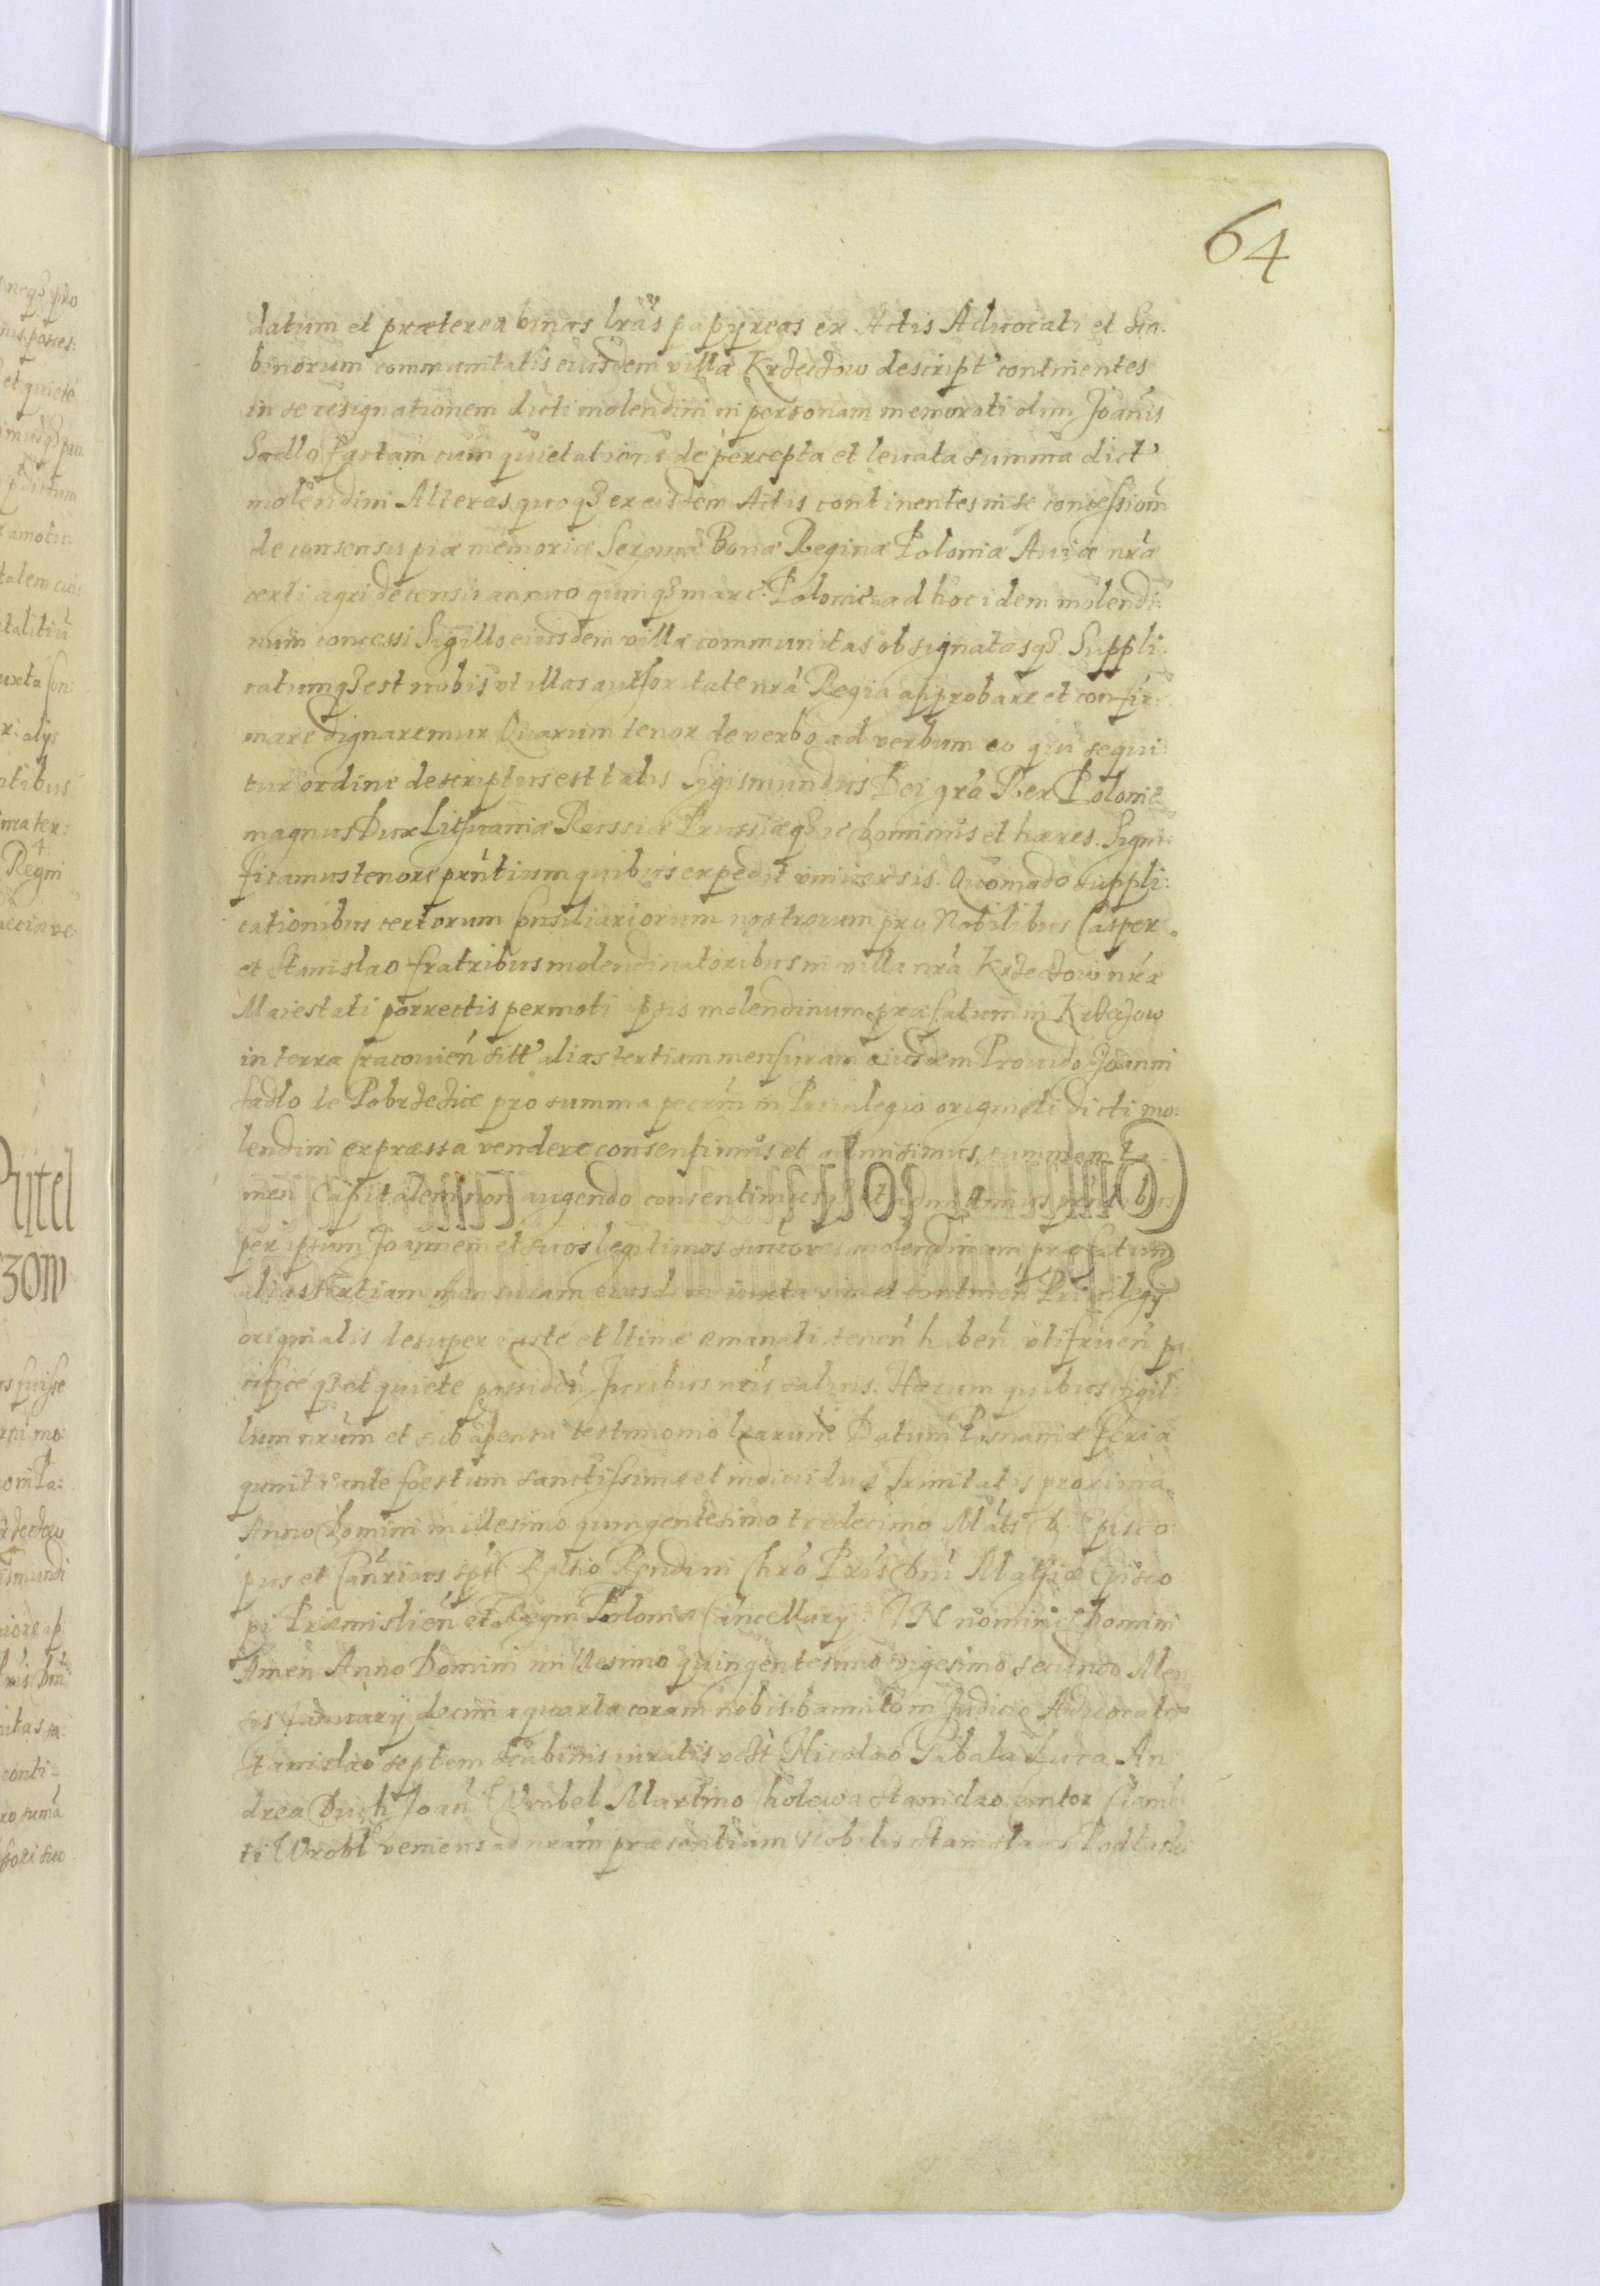 64
datum et præterea binas lrãs papyreas ex Actis Aduocati et Sca-
binorum communitatis eiusdem villæ Krzeczow descript continentes
in se resignationem dicti molendini in personam memorati olim Joañis
Sadlo factam cum quietatione de percepta et leuata summa dict
molendini Alteras quoqȝ ex eisdem Actis continentes in se concessioñ
de consensu piæ memoriæ Serenmæ Bonæ Reginæ Poloniæ Auiæ nrãæ
certi agri de censu annuo quinqȝ marc: Polonic ad hoc idem molendi:
num concessi Sigillo eiusdem villæ communitas obsignatasqȝ Suppli:
catumqȝ est nobis vt illas authoritate nrã Regia approbare et confir:
mare dignaremur Quarum tenor de verbo ad verbum eo qui sequi:
tur ordine descriptus est talis Sigismundus Dei grã Rex Poloniæ
magnus Dux Lithuaniæ Russiæ Prussiæqȝ ac Dominus et hæres. Signi:
ficamus tenore prñtium quibus expedit vniuersis Quomodo suppli:
cationibus certorum Consiliariorum nostrorum pro Nobilibus Casper
et Stanislao fratribus molendinatoribus in villa nrã Krzeczow nrãæ
Maiestati porrectis permoti ipsis molendinum præfatum in Krzeczow
in terra Cracouieñ sitt alias tertiam mensuram eiusdem Prouido Joanni
Sadlo de Pobrzezice pro summa pecuñ in Priuilegio originali dicti mo:
lendini expressa vendere consensimus et admisimus, summam ta:
men Capitalem non augendo consentimusqȝ et admittimus prñtibus
per ipsum Joannem et suos legitimos succores molendinum præfatum
alias tertiam mensuram eiusdem iuxta vim et continen Priuilegij
originalis desuper iuste et ltime emanati, teneñ habeñ vtifrueñ pa:
cificeqȝ et quiete possideñ Juribus nrĩs saluis. Harum quibus sigil:
lum nrũm et subapensu testimonio lrarum Datum Posnaniæ feria
quinta ante foestum sanctissimæ et indiuiduæ Trinitatis proxima
Anno Domini millesimo quingentesimo tredecimo Mats D. Episco:
pus et Cañrius spt Rltio Rndi in Chro Pris Dni Mathiæ Episco
pi Præmislieñ et Regni Poloniæ Cancellary: IN nomini Domini
Amen Anno Domini millesimo quingentesimo vigesimo secundo Men
sis January decima quarta coram nobis bannito in Judicio Aduocato
Stanislao septem scabinis iuratis vzt Nicolao Pabala Luca An
drea Duch Joañ Wrobel Martino Cholewa Stanislao cantor Clemẽ
ti Wrobl veniens ad nrãm præsentiam Nobilis Stanislaus Podlaski